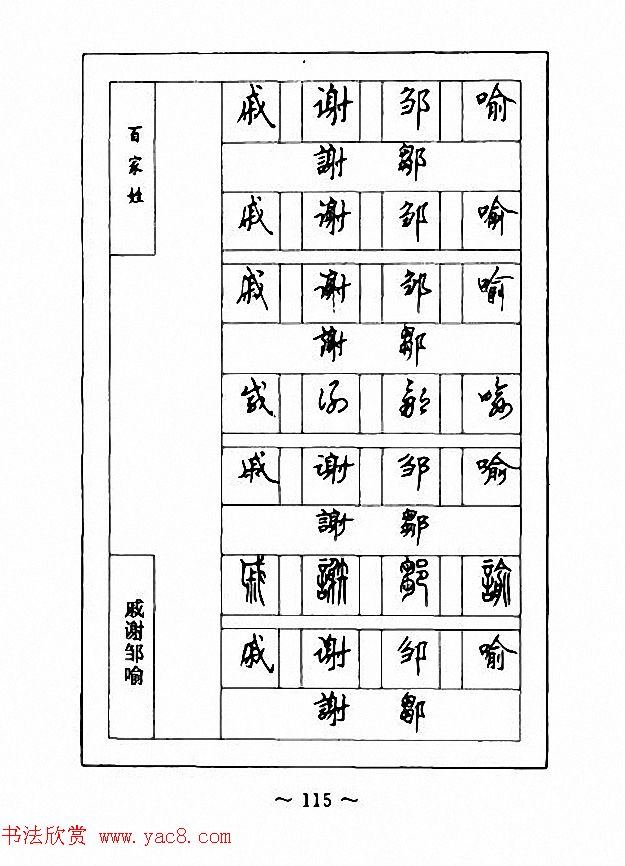 百家姓
戚谢邹喻
戚 谢 邹 喻
謝 鄒
戚 谢 邹 喻
戚 谢 邹 喻
謝 鄒
戚 谢 邹 喻
戚 谢 邹 喻
謝 鄒
戚 謝 鄒 諭
戚 谢 邹 喻
謝 鄒
～ 115 ～
书法欣赏 www.yac8.com